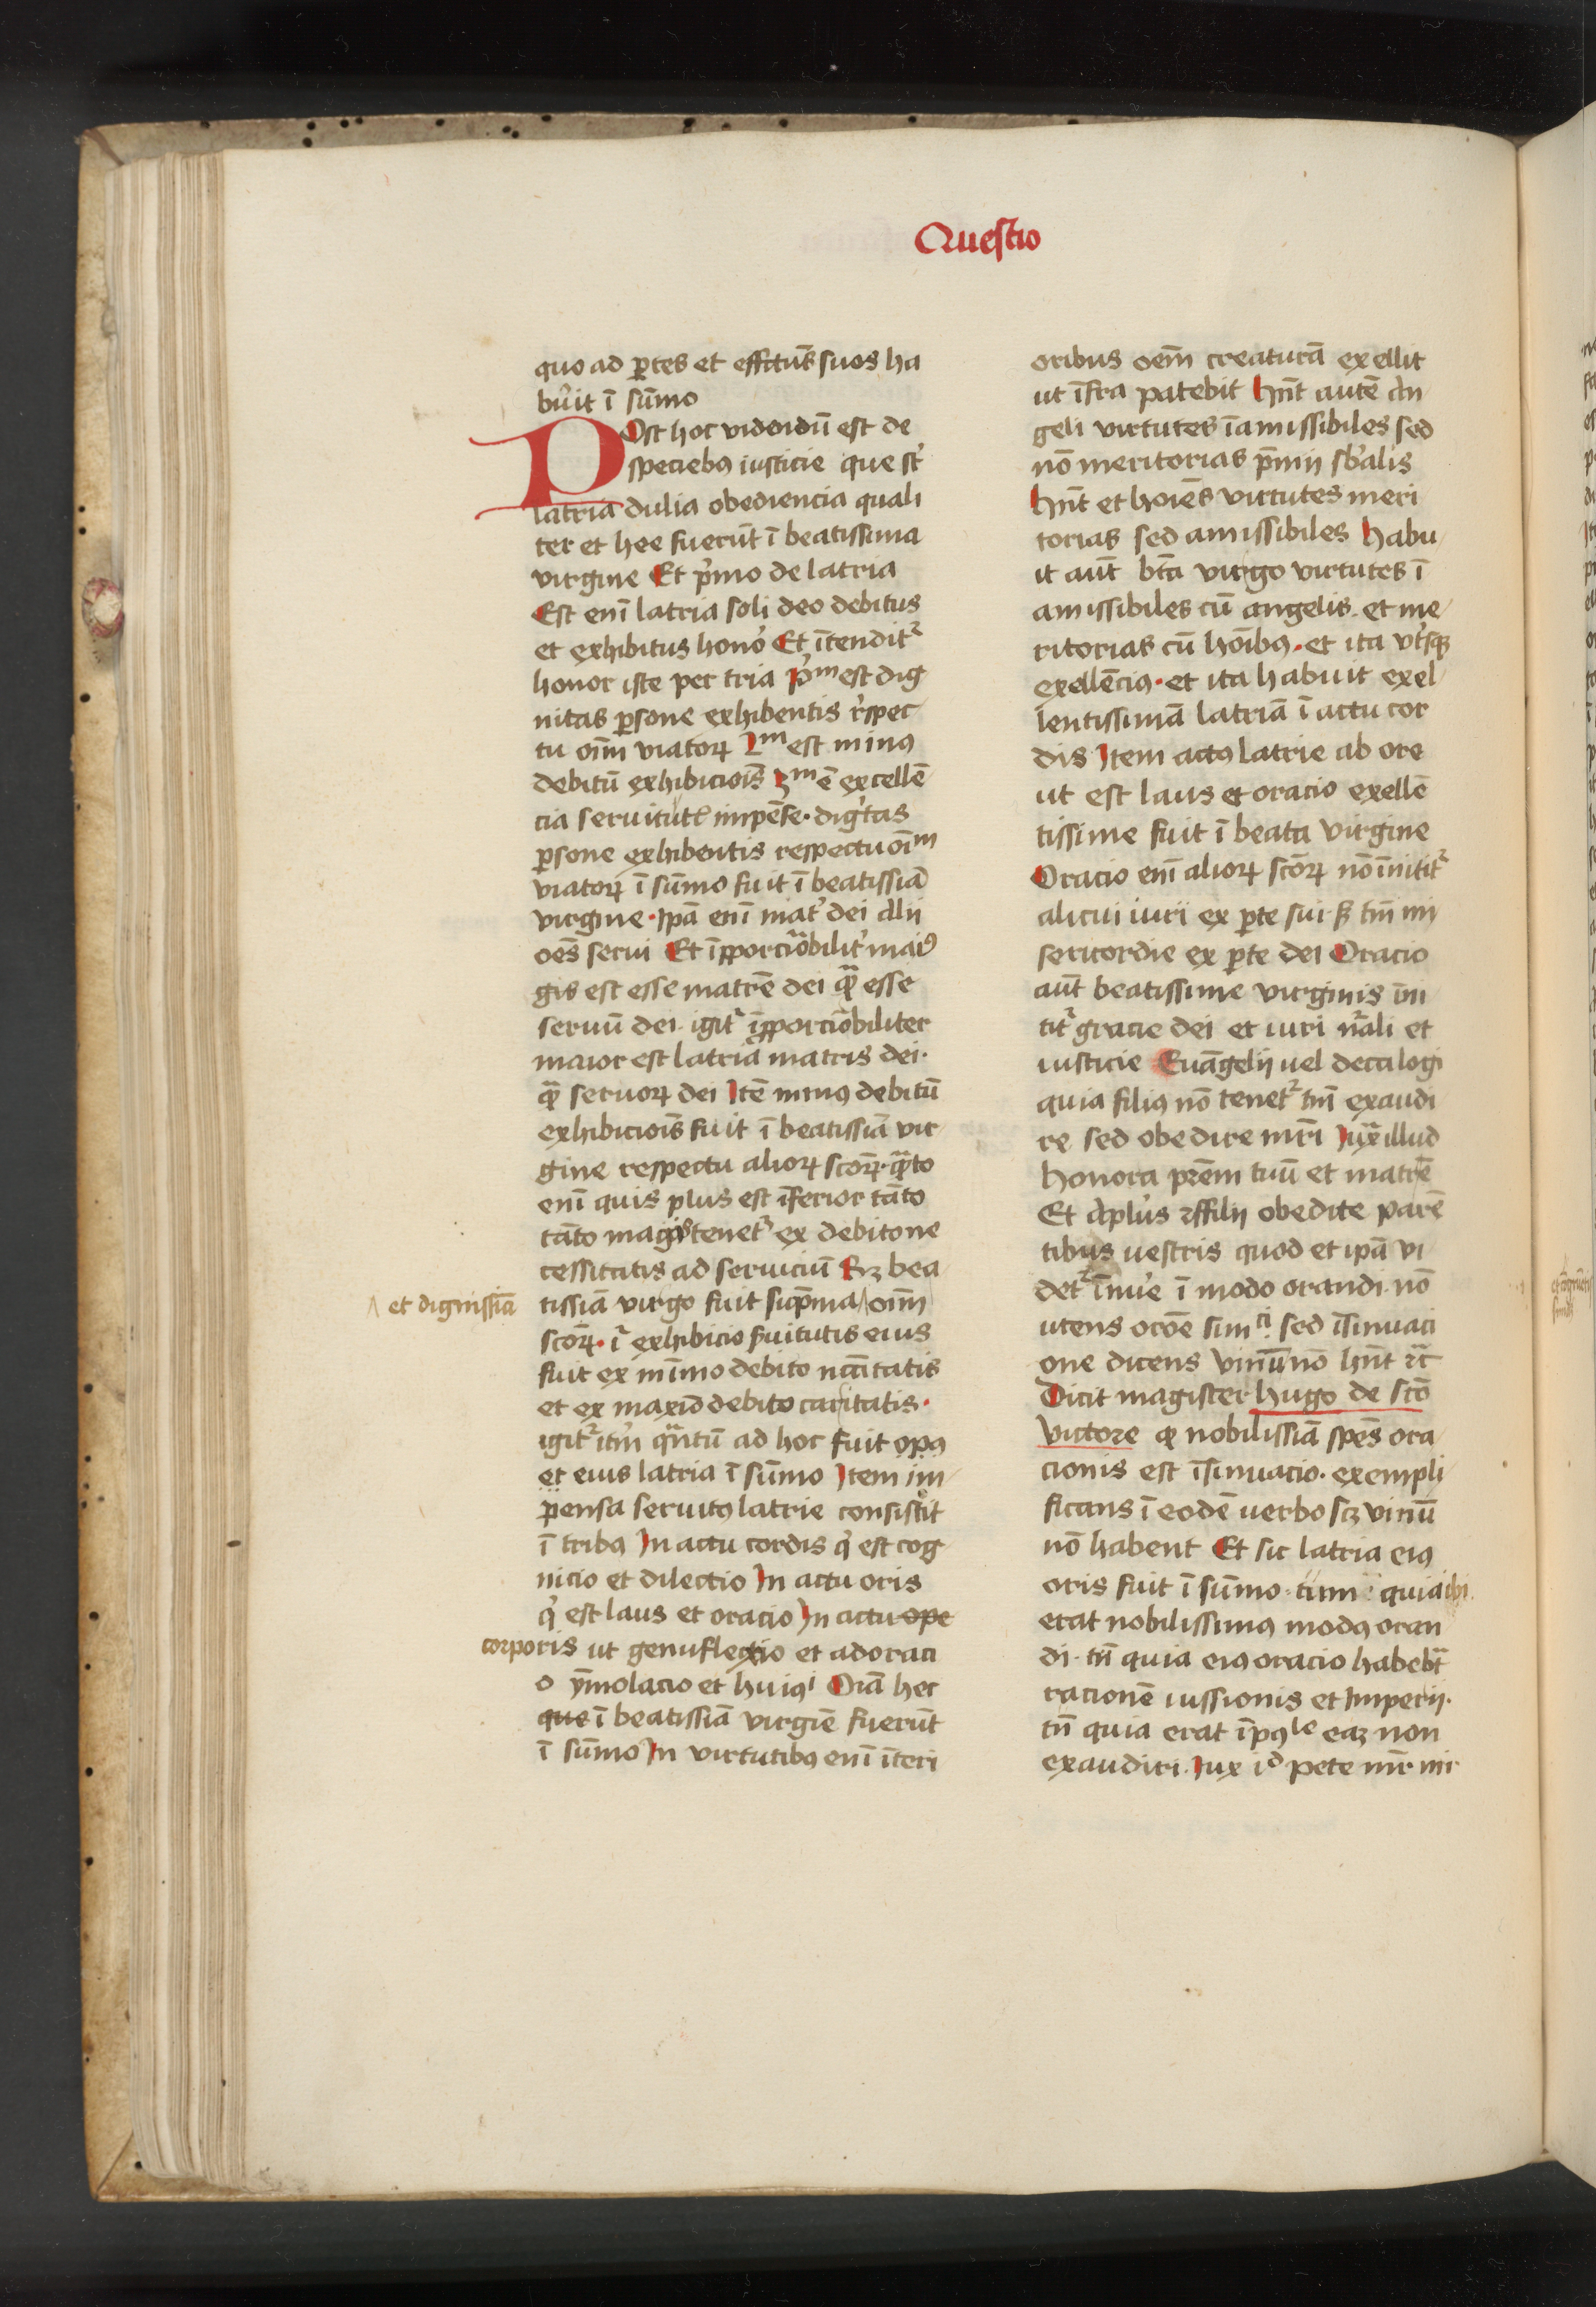 Questio
quo ad ꝑtes et effctus̄ suos ha
buit ī sūmo
Post hoc videndū est de
speciebꝰ iusticie que st̄
latria dulia obediencia quali
ter et hee fuerūt ī beatissima
virgine Et p̄mo de latria
Est enī latria soli deo debitus
et exhibitus honoꝰ Et ītendit᷑
honor iste per tria pᵐ est dig
nitas ꝑsone exhibentis rspec
tu oīm viatoꝝ 2ᵐ est minꝰ
debitū exhibiciois̄ 3ᵐ ē excellē
cia seruitutꝭ impēse · digtas
ꝑsone exhibentis respectu oīm
viatoꝝ ī sūmo fuit ī beatissīa
virgine · Ip̄a enī mat᷑ dei Alii
oēs serui Et īꝓporcōabilit᷑ maiꝰ
gis est esse matrē dei qᷓ esse
seruū dei · igit᷑ īꝓporcōabiliter
maior est latria matris dei ·
qᷓ seruoꝝ dei Itē minꝰ debitū
exhibiciois̄ fuit ī beatissīa vir
gine respectu alioꝝ sc̄oꝝ · qᷓto
enī quis plus est īferior tāto
tāto magis tenet᷑ ex debito ne
cessitatis ad seruiciū Sꝫ bea
tissīa virgo fuit sup̄ma /\ oīm
/\ et dignissīa
sc̄oꝝ · iᷓ exhibicio ẜuitutis eius
fuit ex mīmo debito nc̄citatis
et ex maxīo debito caritatis ·
igit᷑ itm̄ qᷓntū ad hoc fuit opꝰ
et eius latria ī sūmo Item im
pensa seruitꝰ latrie consistit
ī tribꝰ In actu cordis q̄ est cog
nicio et dilectio In actu oris
q̄ est laus et oracio In actu ope
corporis ut genuflexio et adoraci
o ȳmolacio et huiꝰⁱ Oīa hec
que ī beatissīa virgīe fuerūt
ī sūmo In virtutibꝰ enī īteri
oribus oēm creaturā exellit
ut īfra patebit Hn̄t autē An
geli virtutes īamissibiles sed
nō meritorias p̄mii sb̄alis
Hn̄t et hoīes virtutes meri
torias sed amissibiles Habu
it aut̄ bt̄a virgo virtutes ī
amissibiles cū angelis · et me
ritorias cū hoībꝰ · et ita vt᷑sqꝫ
exellēciꝰ · et ita habuit exel
lentissimā latriā ī actu cor
dis Item actꝰ latrie ab ore
ut est laus et oracio exellē
tissime fuit ī beata virgine
Oracio enī alioꝝ sc̄oꝝ nō īnitit᷑
alicui iuri ex ꝑte sui ẜ tm̄ mi
sericordie ex ꝑte dei Oracio
aut̄ beatissime virginis īni
tit᷑ gracie dei et iuri nᷓali et
iusticie Euāgelij uel decalogi
quia filiꝰ nō tenet᷑ tm̄ exaudi
re sed obedire mr̄i Iuxᷓ illud
honora pr̄em tuū et matrē
Et Apl̄us filij obedite parē
tibus uestris quod et ip̄a vi
det᷑ īnue ī modo orandi · nō
utens orōe simᶜⁱ · sed īsinuaci
one dicens vinū nō hn̄t ⁊c̄
Dicit magister hugo de sc̄o
victore ꝙ nobilissīa spēs ora
cionis est īsinuacio · exempli
ficans ī eodē uerbo scꝫ vinū
nō habent Et sic latria eiꝰ
oris fuit ī sūmo · tum quia ibi
erat nobilissimꝰ modꝰ oran
di · tū quia eiꝰ oracio habebᷓt
racionē iussionis et Imperij ·
tū quia erat īpoˡᵉ eaꝫ non
exaudiri · Iux iᵈ pete mr̄ mi